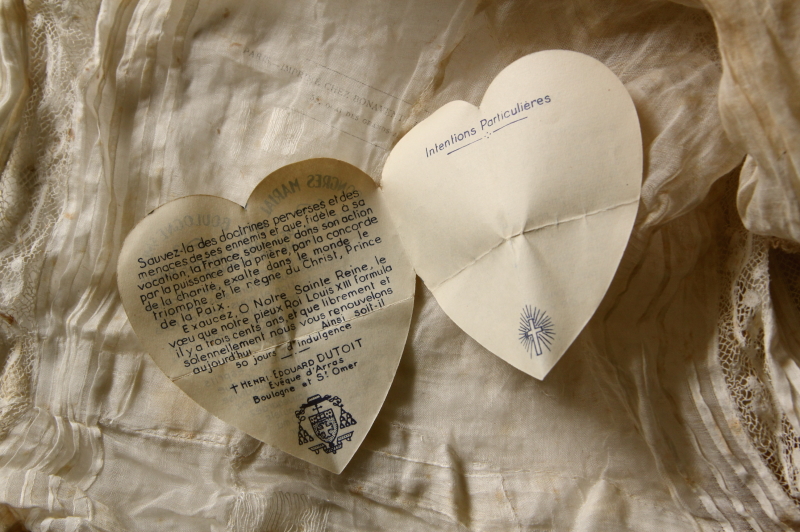 Sauvez-la des doctrines perverses et des
menaces de ses ennemis et que, fidèle à sa
vocation, la France, soutenue dans son action
par la puissance de la prière, par la concorde
de la charité, exalte dans le monde le
triomphe et le règne du Christ, Prince
de la Paix.
Exaucez, O Notre Sainte Reine, le
vœu que notre pieux Roi Louis XIII formula
il y a trois cents ans, et que librement et
solennellement nous vous renouvelons
aujourd'hui. Ainsi soit-il
50 jours d'indulgence
† HENRI-EDOUARD DUTOIT
Evêque d'Arras
Boulogne et St Omer
Intentions Particulières